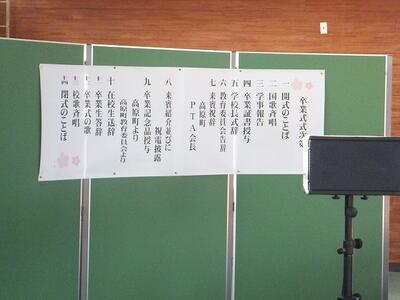 卒業式式次第
一 開式のことば
二 国歌斉唱
三 学事報告
四 卒業証書授与
五 学校長式辞
六 教育委員会告辞
七 来賓祝辞
高原町
ＰＴＡ会長
八 来賓紹介並びに
祝電披露
九 卒業記念品授与
高原町より
高原町教育委員会より
十 在校生送辞
十一 卒業生答辞
十二 卒業式の歌
十三 校歌斉唱
十四 閉式のことば